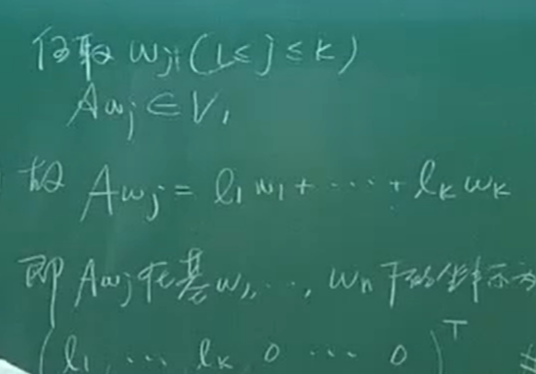 任取 wj (1≤j≤k)
Awj∈V1
故 Awj = l1 w1 + ··· + lk wk
即 Awj 在基 w1, ···, wn 下的坐标示为
(l1 ··· lk 0 ··· 0)^T